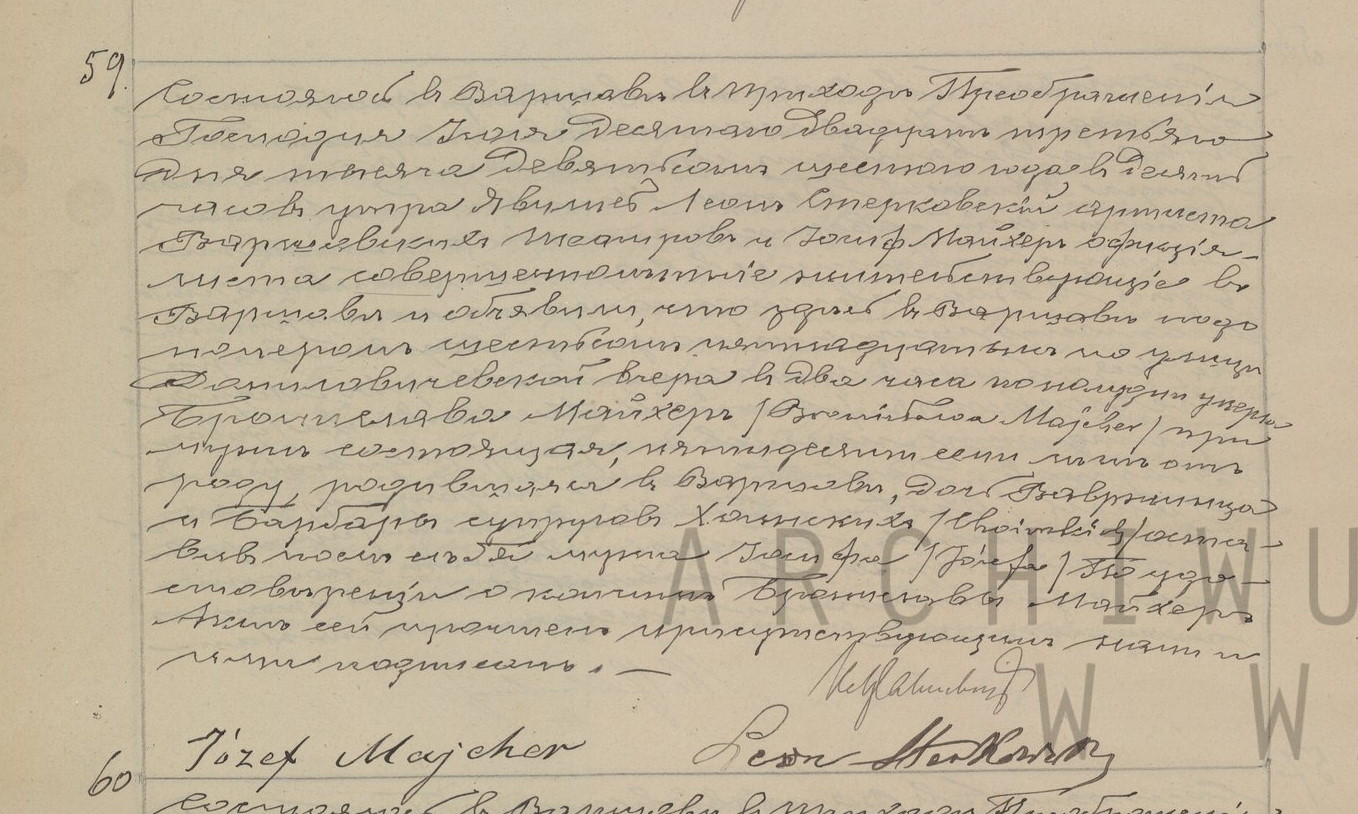 59.
Состоялось въ Варшавѣ въ приходѣ Преображенія
Господня Іюля десятаго двадцать третьяго
дня тысяча девятьсотъ шестого года въ десять
часовъ утра. Явились Леонъ Стерковскій артиста
Варшавскихъ Театровъ и Іосифъ Майхеръ офиція-
листа совершеннолѣтніе жительствующіе въ
Варшавѣ и объявили, что здѣсь въ Варшавѣ подъ
номеромъ шестьсотъ пятнадцатымъ по улицѣ
Даниловичевской вчера въ два часа пополудни умерла
Бронислава Майхеръ /Bronisława Majcher/ при
мужѣ состоящая, пятьдесятъ семь лѣтъ отъ
роду, родившаяся въ Варшавѣ, дочь Вавржинца
и Барбары супруговъ Хоинскихъ /Choińskich/ оста-
вивъ послѣ себя мужа Іосифа /Józefa/ По удо-
стовѣреніи о кончинѣ Брониславы Майхеръ
Актъ сей прочтенъ присутствующимъ нами и
ими подписанъ. —
Józef Majcher Leon Sterkowski
60
Состоялось въ Варшавѣ въ приходѣ Преображенія
ARCHIWU
W W